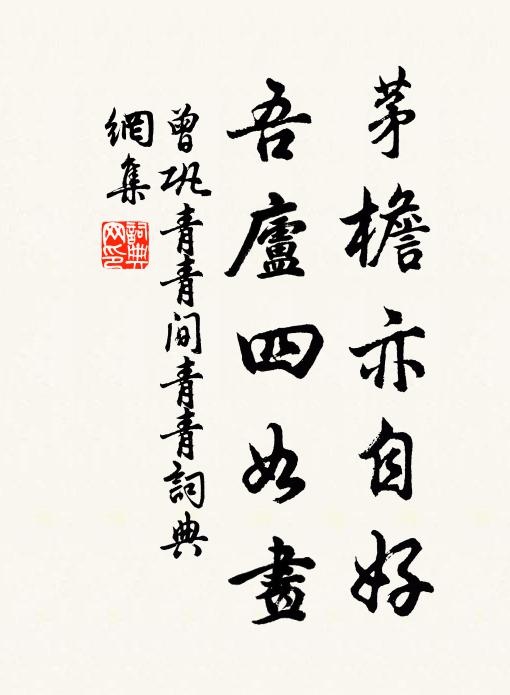 茅檐亦自好
吾廬四如畫
曾巩青青间青青詞典
網集
詞典
网印